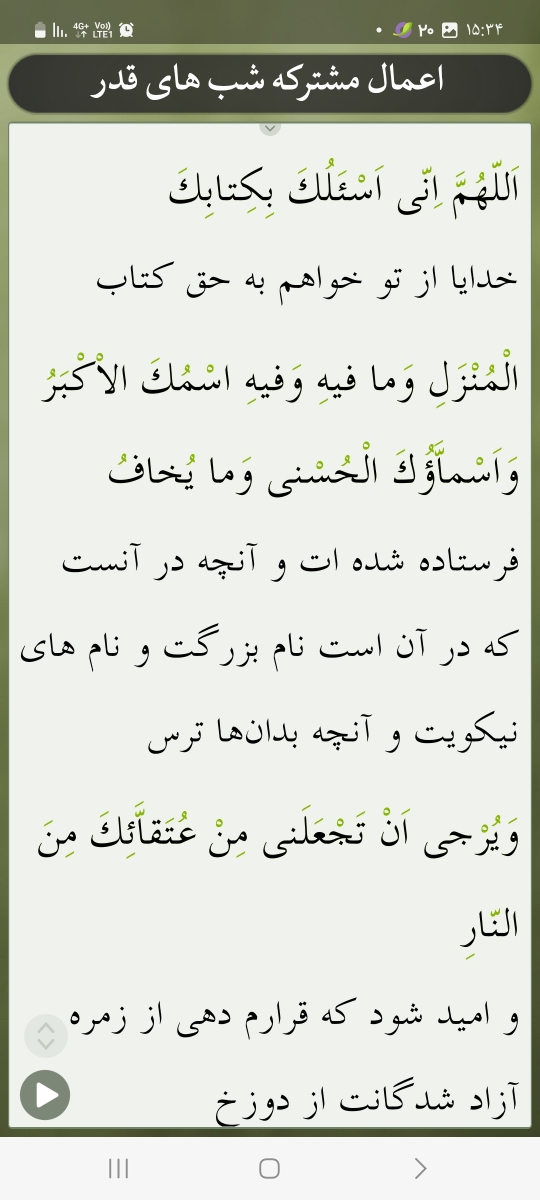 ۱۵:۳۴ ۲۰ Vo)) LTE1 4G+
اعمال مشترکه شب های قدر
اَللّهُمَّ اِنّی اَسْئَلُكَ بِكِتابِكَ
خدایا از تو خواهم به حق کتاب
الْمُنْزَلِ وَما فیهِ وَفیهِ اسْمُكَ الاْكْبَرُ
وَاَسْماَّؤُكَ الْحُسْنی وَما یُخافُ
فرستاده شده ات و آنچه در آنست
که در آن است نام بزرگت و نام های
نیکویت و آنچه بدان‌ها ترس
وَیُرْجی اَنْ تَجْعَلَنی مِنْ عُتَقاَّئِكَ مِنَ
النّارِ
و امید شود که قرارم دهی از زمره
آزاد شدگانت از دوزخ